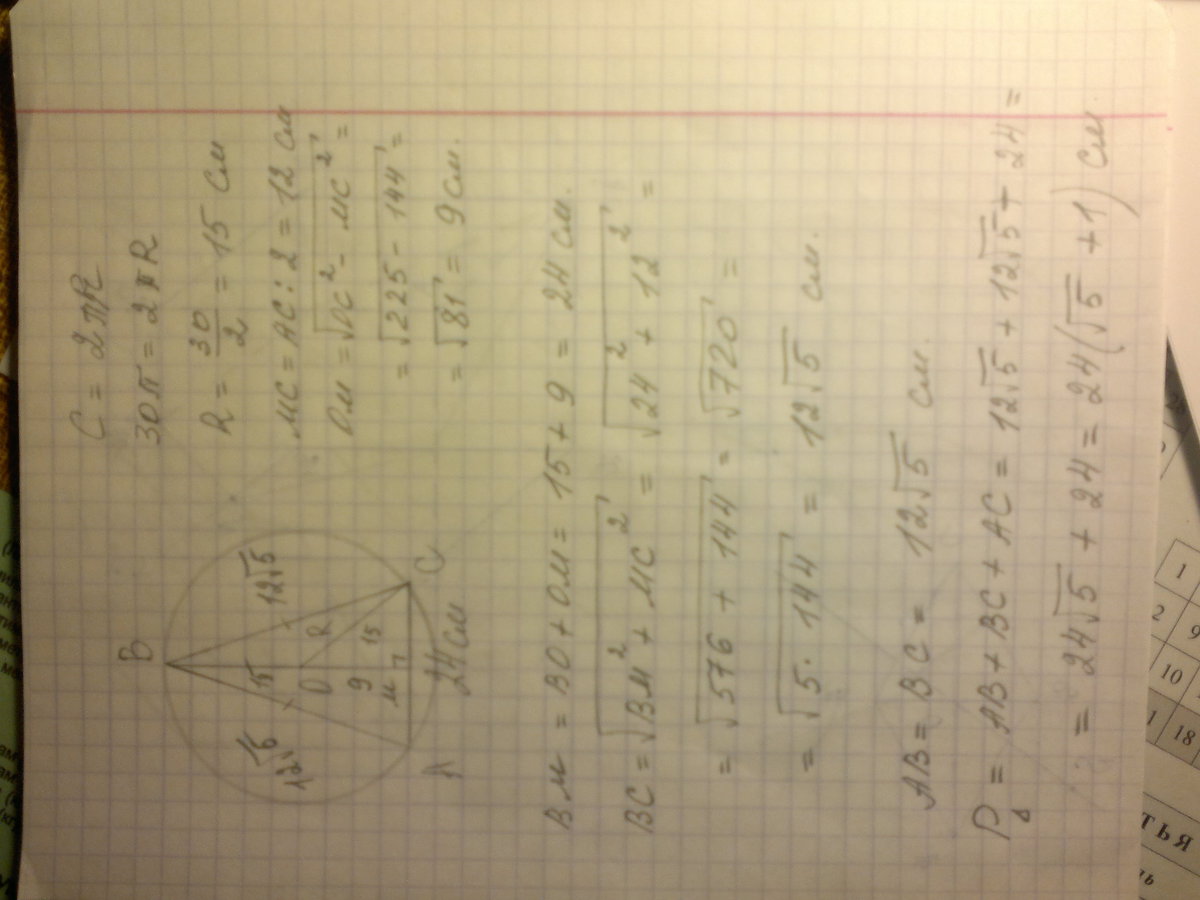 C = 2πR
30π = 2πR
R = 30/2 = 15 см
MC = AC : 2 = 12 см
OM = √OC² - MC² =
= √225 - 144 =
= √81 = 9 см.
B
12√5
12√5
15
O
R
9
15
M
A
C
24 см
BM = BO + OM = 15 + 9 = 24 см.
BC = √BM² + MC² = √24² + 12² =
= √576 + 144 = √720 =
= √5 · 144 = 12√5 см.
AB = BC = 12√5 см.
P△ = AB + BC + AC = 12√5 + 12√5 + 24 =
= 24√5 + 24 = 24(√5 + 1) см.
1
2
9
10
1
18
ТЬЯ